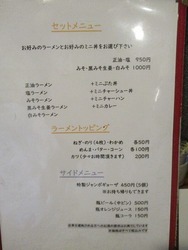 セットメニュー
お好みのラーメンとお好みのミニ丼をお選び下さい
正油・塩 950円
みそ・黒みそ生姜・白みそ 1000円
正油ラーメン +ミニぶた丼
塩ラーメン +ミニチャーシュー丼
みそラーメン +ミニチャーハン
黒みそ生姜ラーメン +ミニカレー
白みそラーメン
ラーメントッピング
ねぎ・のり(4枚)・わかめ 各50円
めんま・バター・コーン 各100円
カツ(タマお時間頂きます) 200円
サイドメニュー
特製ジャンボギョーザ 450円(5個)
※お持ち帰りもできます
瓶ビール(キリン) 500円
瓶オレンジジュース 150円
瓶コーラ 150円